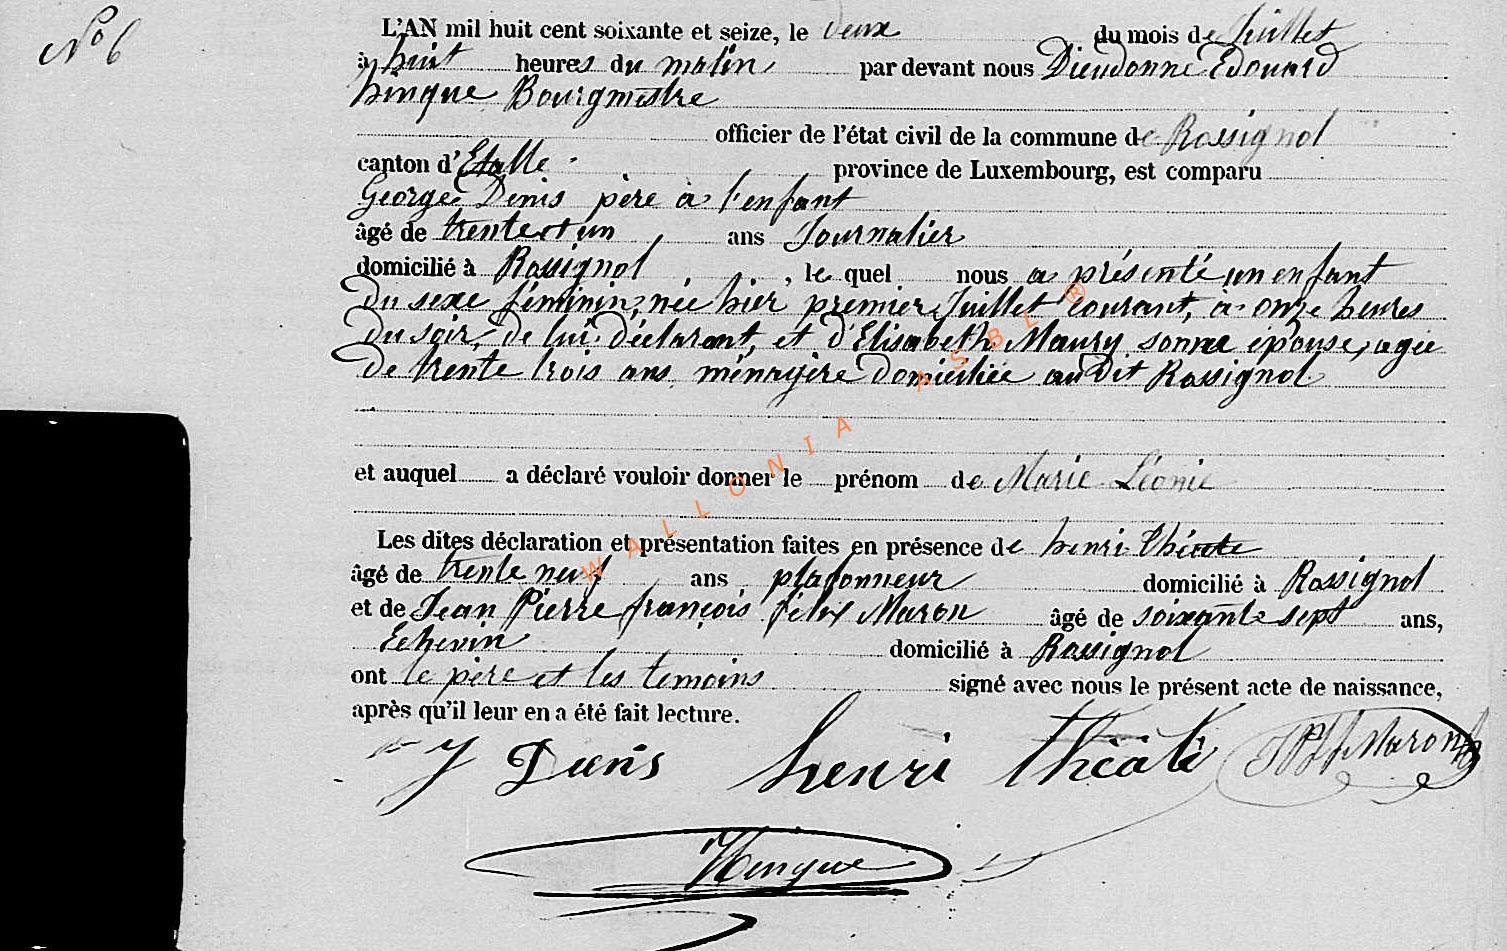 N° 6
L'AN mil huit cent soixante et seize, le deux du mois de Juillet
à huit heures du matin, par devant nous Dieudonné Edouard
hinque Bourgmestre
officier de l'état civil de la commune de Rossignol
canton d'Etalle province de Luxembourg, est comparu
George Denis père à l'enfant
âgé de trente et un ans Journalier
domicilié à Rossignol, le quel nous a présenté un enfant
du sexe féminin, née hier premier Juillet courant, à onze heures
du soir, de lui déclarant, et d'Elisabeth Maury sonne épouse, agée
de trente trois ans, ménagère domiciliée audit Rossignol
et auquel a déclaré vouloir donner le prénom de Marie Léonie
Les dites déclaration et présentation faites en présence de henri
âgé de trente neuf ans plafonneur domicilié à Rossignol
et de Jean Pierre françois félix Maron âgé de soixante sept ans,
Echevin domicilié à Rossignol
ont le père et les temoins signé avec nous le présent acte de naissance,
après qu'il leur en a été fait lecture.
Denis henri JPff Maron
Hinque
WALLONIA ASBL ®